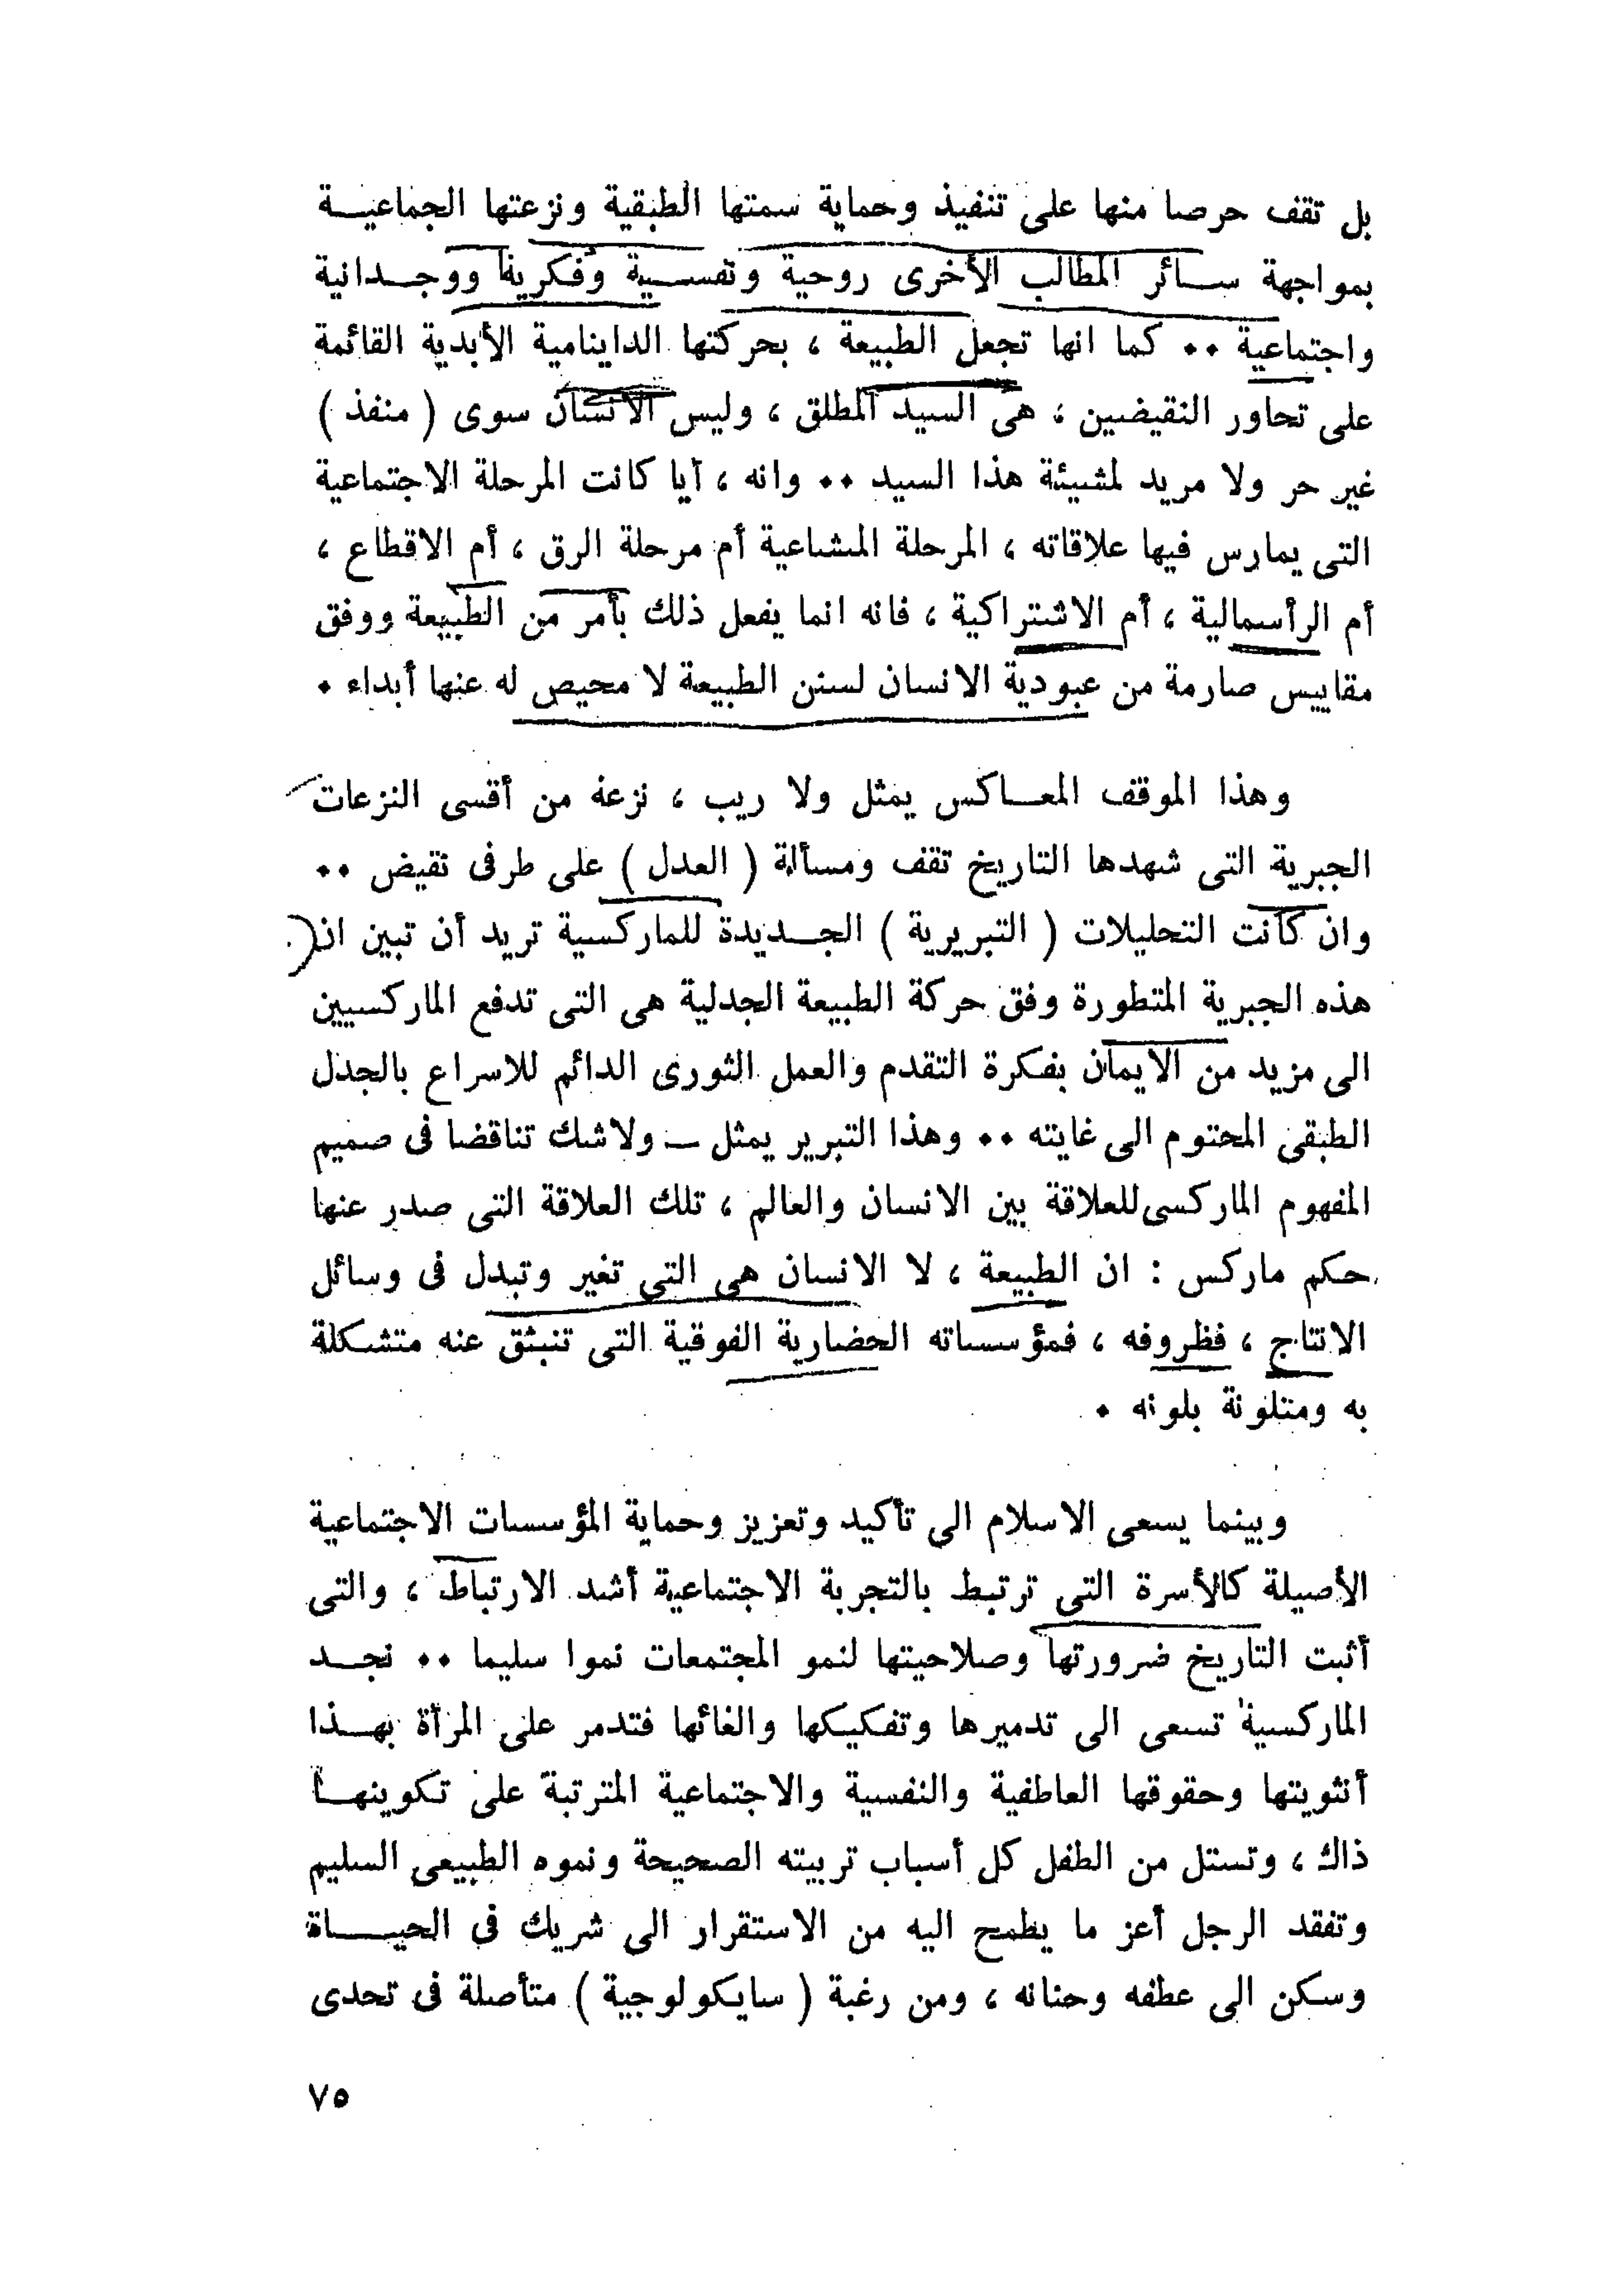 بل تقف حرصا منها على تنفيذ وحماية سمتها الطبقية ونزعتها الجماعيـــة
بمواجهة ســـائر المطالب الأخرى روحية ونفســية وفكرية ووجــدانية
واجتماعية ٠٠ كما انها تجعل الطبيعة ، بحركتها الداينامية الأبدية القائمة
على تحاور النقيضين ، هى السيد المطلق ، وليس الانسان سوى ( منفذ )
غير حر ولا مريد لمشيئة هذا السيد ٠٠ وانه ، أيا كانت المرحلة الاجتماعية
التى يمارس فيها علاقاته ، المرحلة المشاعية أم مرحلة الرق ، أم الاقطاع ،
أم الرأسمالية ، أم الاشتراكية ، فانه انما يفعل ذلك بأمر من الطبيعة ووفق
مقاييس صارمة من عبودية الانسان لسنن الطبيعة لا محيص له عنها أبداء ٠
وهذا الموقف المعـــاكس يمثل ولا ريب ، نزعة من أقسى النزعات
الجبرية التى شهدها التاريخ تقف ومسألة ( العدل ) على طرفى نقيض ٠٠
وان كانت التحليلات ( التبريرية ) الجـــديدة للماركسية تريد أن تبين ان
هذه الجبرية المتطورة وفق حركة الطبيعة الجدلية هى التى تدفع الماركسيين
الى مزيد من الايمان بفكرة التقدم والعمل الثورى الدائم للاسراع بالجدل
الطبقى المحتوم الى غايته ٠٠ وهذا التبرير يمثل ــ ولاشك تناقضا فى صميم
المفهوم الماركسى للعلاقة بين الانسان والعالم ، تلك العلاقة التى صدر عنها
حكم ماركس : ان الطبيعة ، لا الانسان هى التى تغير وتبدل فى وسائل
الانتاج ، فظروفه ، فمؤسساته الحضارية الفوقية التى تنبثق عنه متشكلة
به ومتلونة بلونه ٠
وبينما يسعى الاسلام الى تأكيد وتعزيز وحماية المؤسسات الاجتماعية
الأصيلة كالأسرة التى ترتبط بالتجربة الاجتماعية أشد الارتباط ، والتى
أثبت التاريخ ضرورتها وصلاحيتها لنمو المجتمعات نموا سليما ٠٠ نجــد
الماركسية تسعى الى تدميرها وتفكيكها والغائها فتدمر على المرأة بهــذا
أنثويتها وحقوقها العاطفية والنفسية والاجتماعية المترتبة على تكوينهــا
ذاك ، وتستل من الطفل كل أسباب تربيته الصحيحة ونموه الطبيعى السليم
وتفقد الرجل أعز ما يطمح اليه من الاستقرار الى شريك فى الحيـــاة
وسكن الى عطفه وحنانه ، ومن رغبة ( سايكولوجية ) متأصلة فى تحدى
٧٥